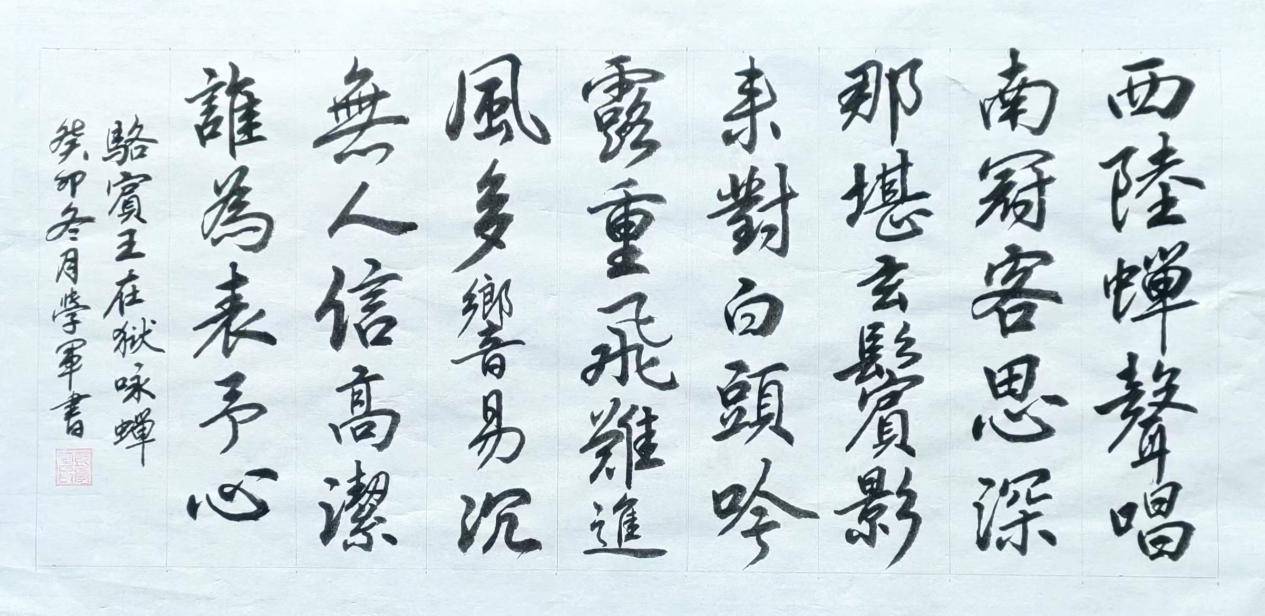 西陸蟬聲唱
南冠客思深
那堪玄鬢影
来對白頭吟
露重飛難進
風多響易沉
無人信高潔
誰為表予心
駱賓王在獄咏蟬
癸卯冬月學軍書